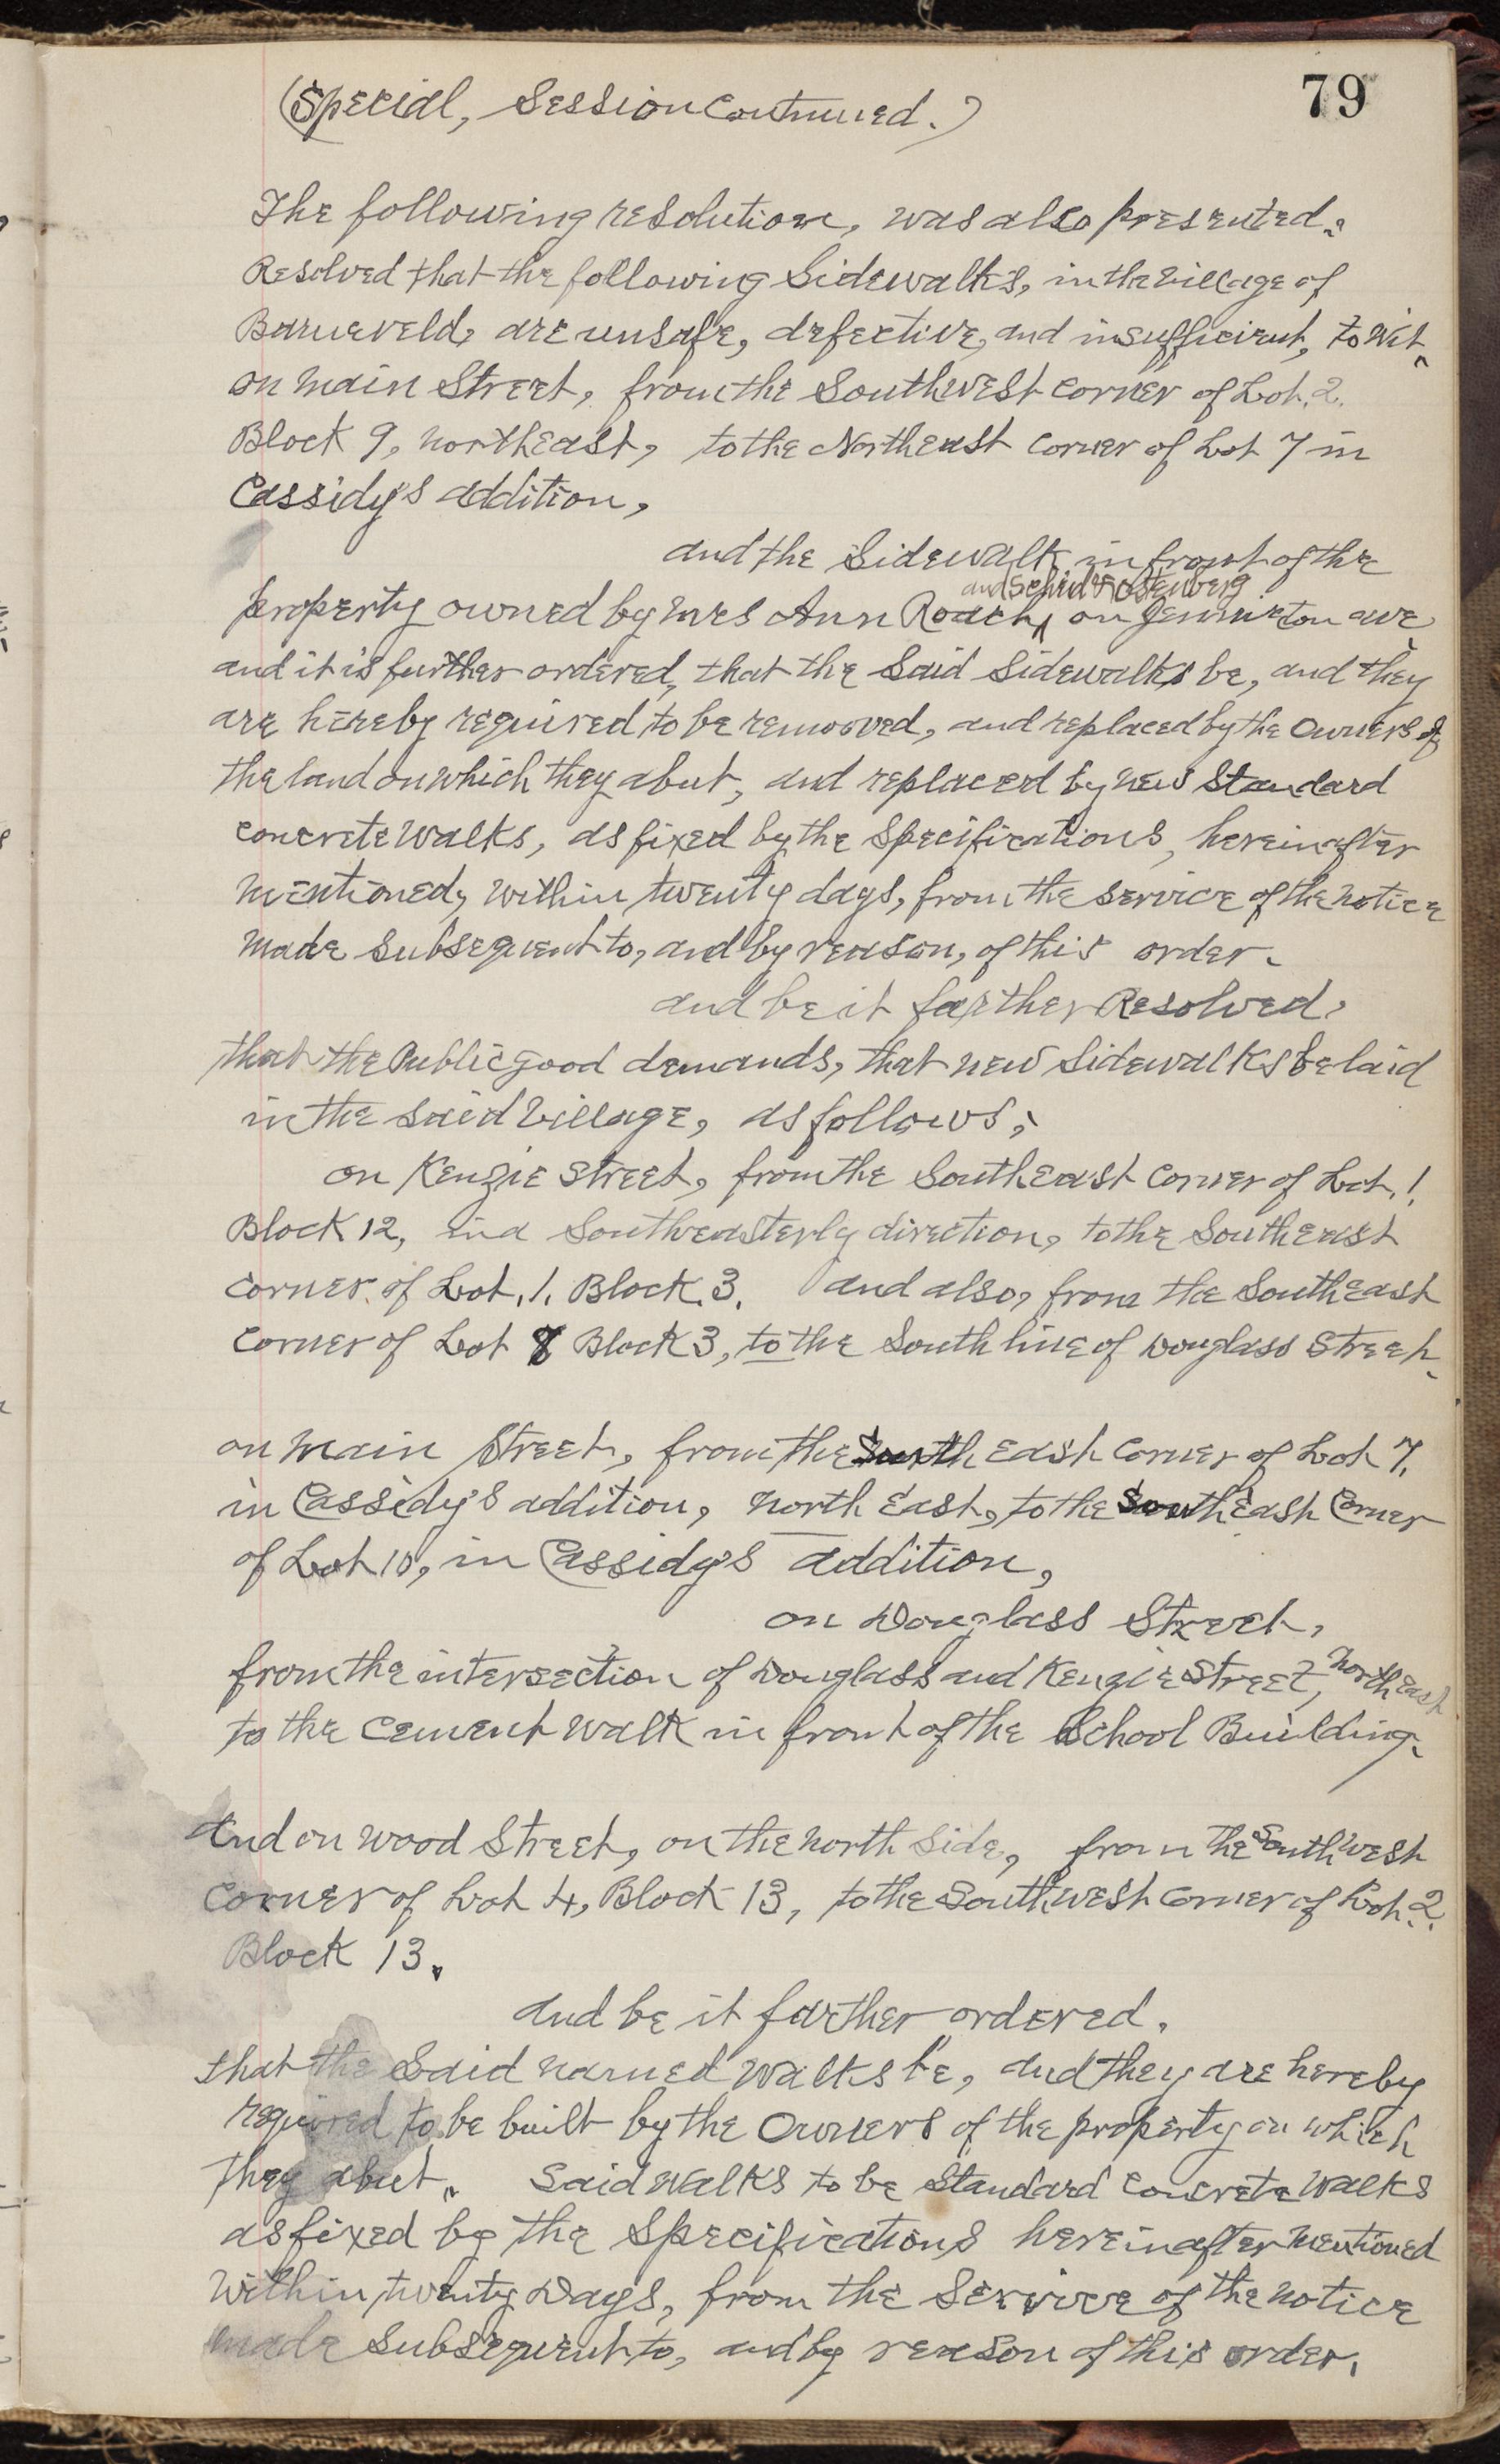 79
(Special, Session Continued.)
The following resolution, was also presented.
Resolved that the following Sidewalks, in the Village of
Barneveld, are unsafe, defective, and insufficient, to Wit.
on Main Street, from the Southwest corner of Lot. 2.
Block 9, northeast, to the Northeast corner of Lot 7 in
Cassidy's addition,
and the Sidewalk in front of the
and
property owned by Mrs Ann Roach, on Jennieton ave
and it is further ordered, that the Said Sidewalks be, and they
are hereby required to be remooved, and replaced by the owners of
the land on which they abut, and replaced by new Standard
concrete walks, as fixed by the Specifications, hereinafter
mentioned, within twenty days, from the service of the notice
made subsequent to, and by reason, of this order.
and be it farther Resolved,
that the Public good demands, that new Sidewalks be laid
in the said Village, as follows;
on Kenzie Street, from the Southeast Corner of Lot. 1.
Block 12, in a Southeasterly direction, to the Southeast
corner of Lot. 1. Block. 3. and also, from the Southeast
corner of Lot 8 Block 3, to the South line of Douglass Street.
on Main Street, from the South East Corner of Lot 7.
in Cassidy's addition, north East, to the South East Corner
of Lot 10, in Cassidy's addition,
on Douglass Street,
from the intersection of Douglass and Kenzie Street, North East
to the Cement Walk in front of the School Building.
And on Wood Street, on the north Side, from the Southwest
corner of Lot 4, Block 13, to the Southwest corner of Lot. 2.
Block 13.
And be it farther ordered.
that the Said named Walks be, and they are hereby
required to be built by the Owners of the property on which
they abut. Said Walks to be Standard Concrete Walks
as fixed by the Specifications hereinafter Mentioned
within twenty Days, from the Service of the notice
made Subsequent to, and by reason of this order.